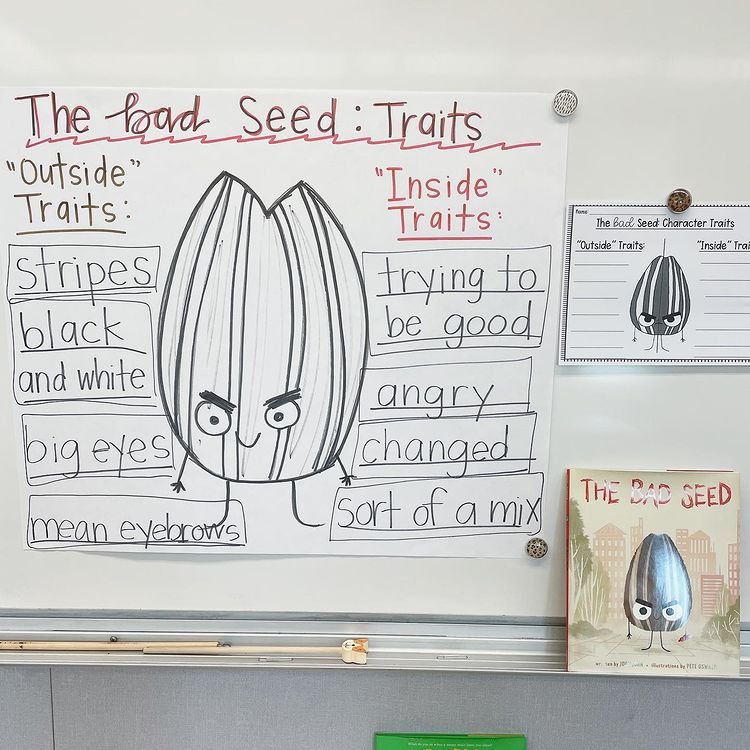 The bad Seed: Traits
"Outside"
Traits:
stripes
black
and white
big eyes
mean eyebrows
"Inside"
Traits:
trying to
be good
angry
changed
sort of a mix
Name
The Bad Seed: Character Traits
"Outside" Traits:
"Inside"
THE BAD SEED
written by • illustrations by PETE